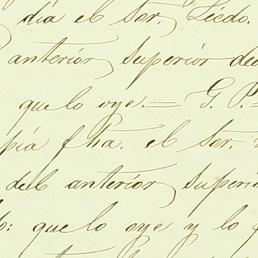 día el Sor. Licdo.
anterior Superior de
que lo oye.= G. P.
pía fha. el Sor.
del anterior Superi
que lo oye y lo f